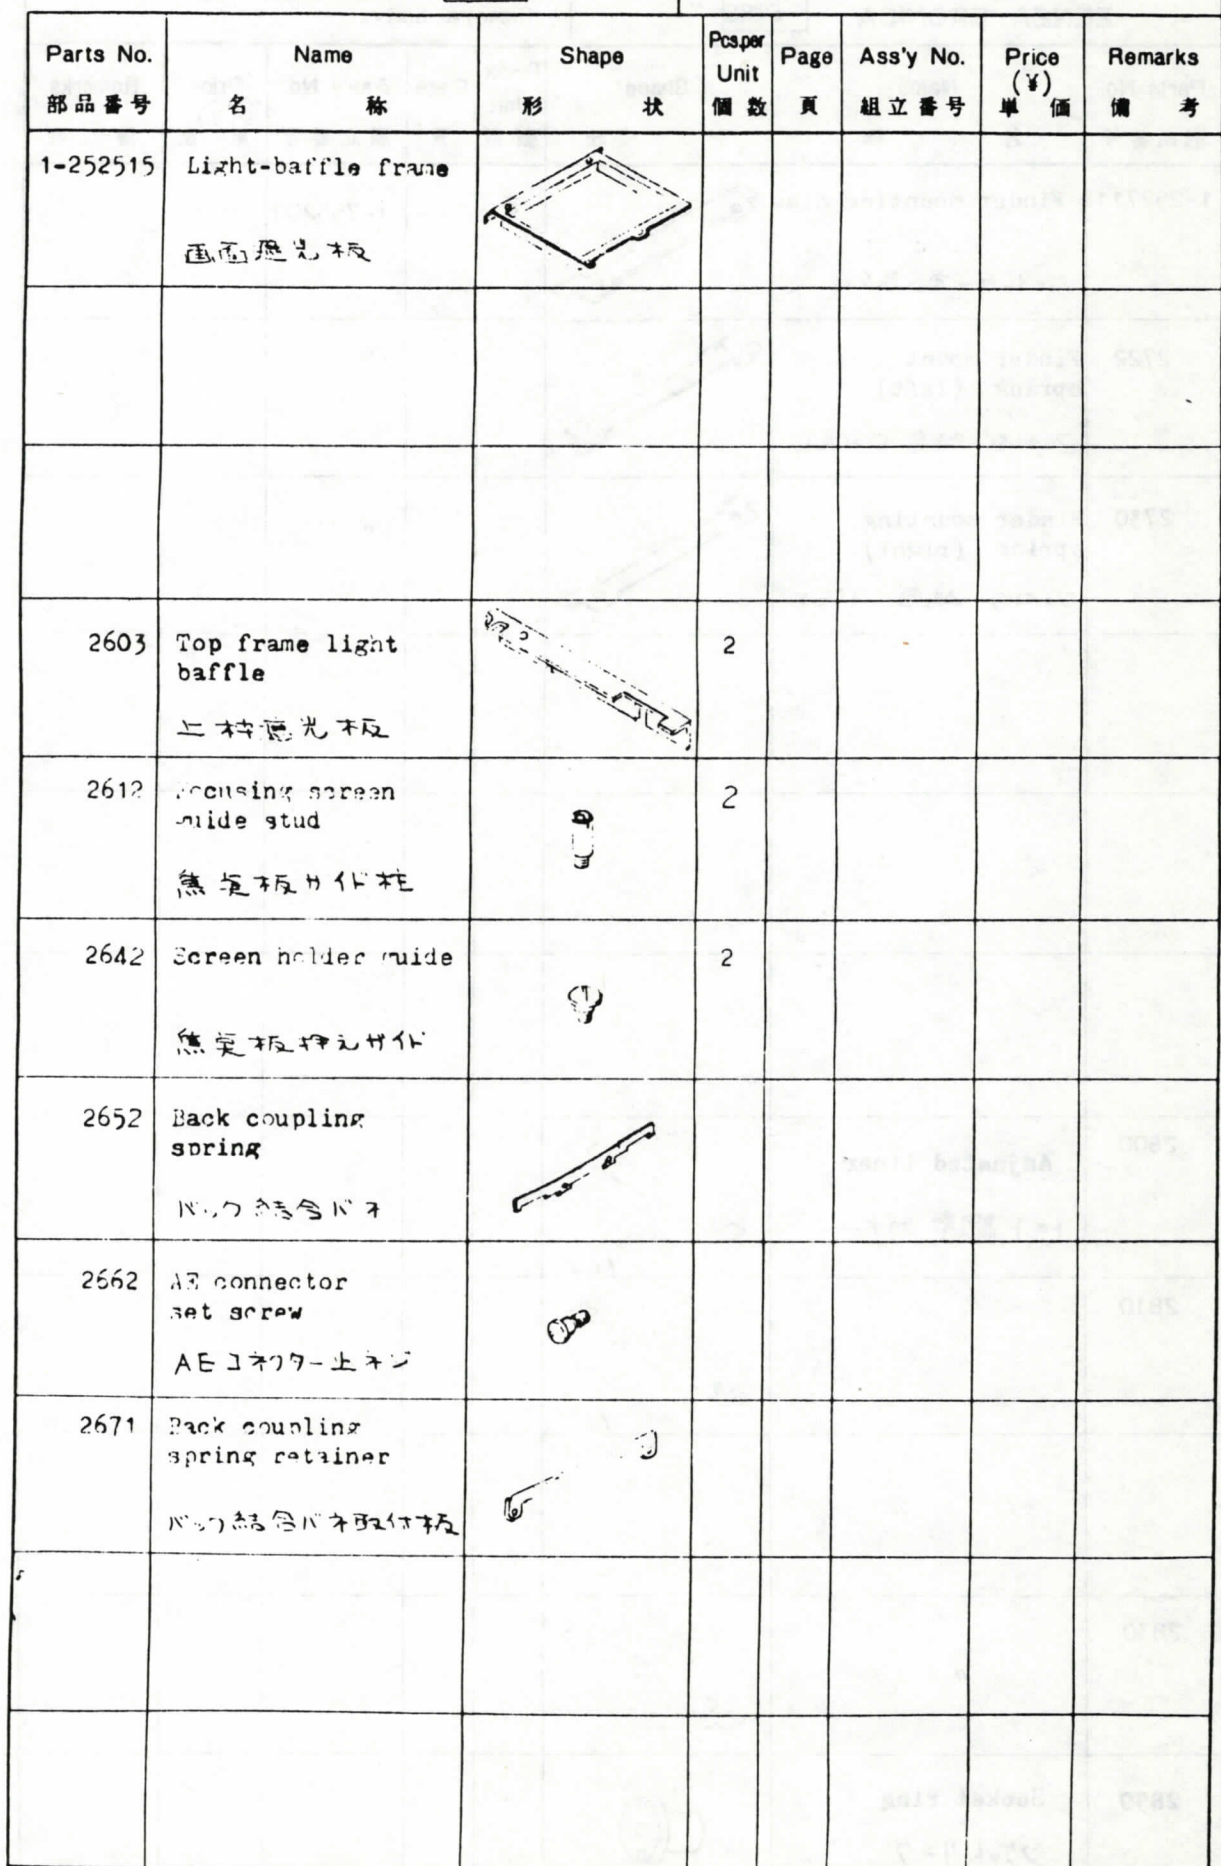 Parts No.
Name
Shape
Pcs.per
Unit
Page
Ass'y No.
Price
(¥)
Remarks
部品番号
名 称
形 状
個数
頁
組立番号
単 価
備 考
1-252515
Light-baffle frame
画面遮光板
2603
Top frame light
baffle
2
上枠遮光板
2612
Focusing screen
guide stud
2
焦点板ガイド柱
2642
Screen holder guide
2
焦点板押えガイド
2652
Back coupling
spring
バック結合バネ
2662
AE connector
set screw
AEコネクター止ネジ
2671
Back coupling
spring retainer
バック結合バネ取付板